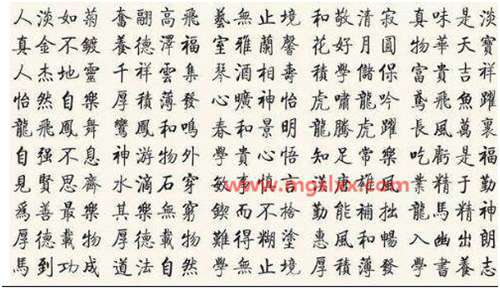 人淡如菊 奮翮高飛 藝無止境 和敬清寂 真味是淡
真金不鍍 養德澤福 室雅蘭馨 花好月圓 物華天寶
人杰地靈 千祥雲集 琴酒相壽 積學儲 富貴吉祥
怡然自樂 厚積薄發 心曠神怡 虎嘯龍吟 鳶飛魚躍
龍飛鳳舞 鸞鳳和鳴 春和景明 龍騰虎躍 長風萬裏
自强不息 神游物外 學貴心悟 知足常樂 吃虧是福
見賢思齊 水滴石穿 敏事慎言 業精于勤
www.mgslxx.com
爲善最樂 其樂無窮 鍥而不捨 勤能補拙 龍馬精神
厚德載物 厚德載物 難得糊塗 惠風和暢 入幽出朗
馬到功成 道法自然 學無止境 厚積薄發 學書養志